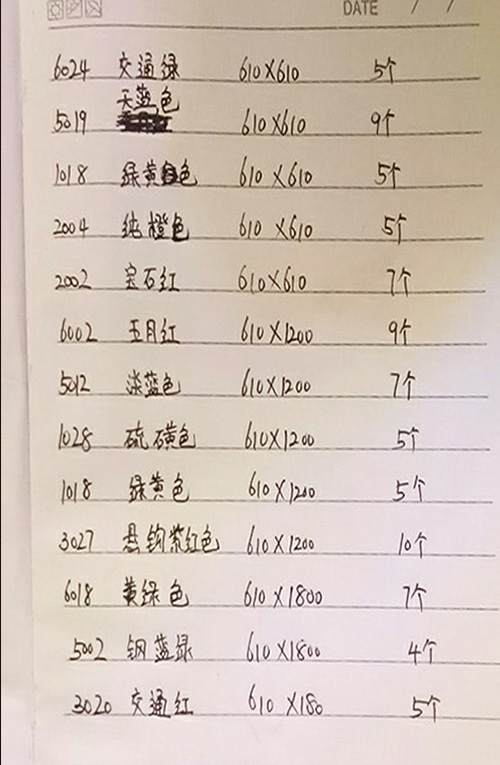 DATE / /
6024 交通绿 610×610 5个
天蓝色
5019 610×610 9个
1018 绿黄色 610×610 5个
2004 纯橙色 610×610 5个
2002 宝石红 610×610 7个
6002 五月红 610×1200 9个
5012 淡蓝色 610×1200 7个
1028 硫磺色 610×1200 5个
1018 绿黄色 610×1200 5个
3027 悬钩紫红色 610×1200 10个
6018 黄绿色 610×1800 7个
5002 钢蓝绿 610×1800 4个
3020 交通红 610×180 5个